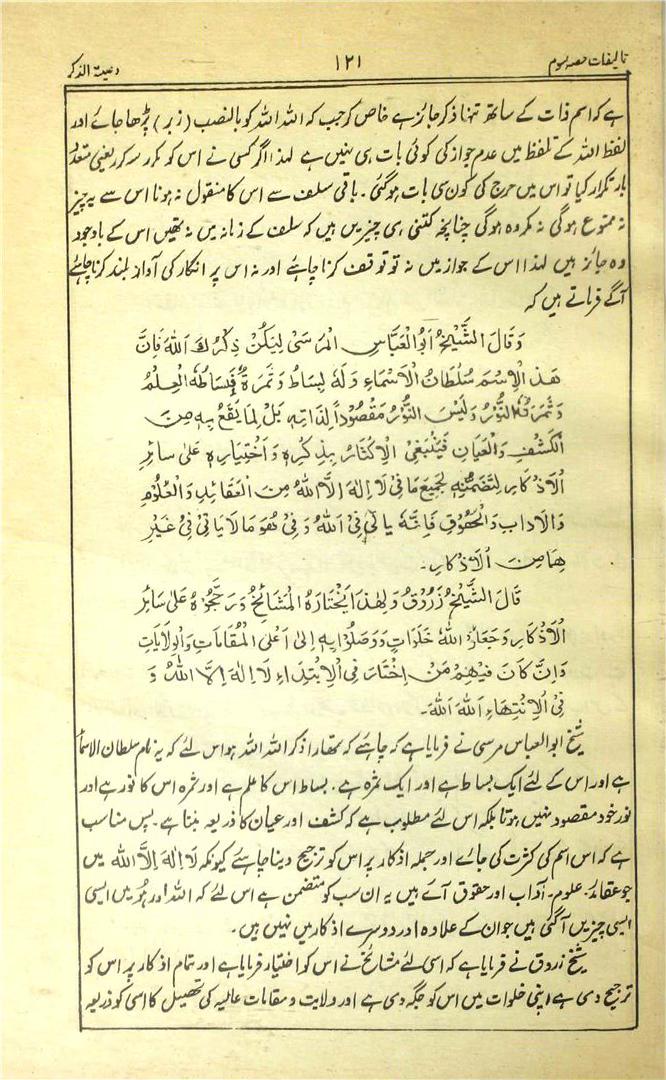 تالیفات حصہ سوم
۱۲۱
وصیۃ الذکر
ہے کہ اسم ذات کے ساتھ تنہا ذکر جائز ہے خاص کر جب کہ اللہ اللہ کو بالنصب (زبر) پڑھا جائے اور
لفظ اللہ کے تلفظ میں عدم جواز کی کوئی بات ہی نہیں ہے لہذا اگر کسی نے اس کو مکرر سہ کرر یعنی متعدد
بار تکرار کیا تو اس میں حرج کی کون سی بات ہوگئی۔ باقی سلف سے اس کا منقول نہ ہونا اس سے یہ چیز
نہ ممنوع ہوگی نہ مکروہ ہوگی چنانچہ کتنی ہی چیزیں ہیں کہ سلف کے زمانہ میں نہ تھیں اس کے باوجود
وہ جائز ہیں لہذا اس کے جواز میں نہ تو توقف کرنا چاہئے اور نہ اس پر انکار کی آواز بلند کرنا چاہئے
آگے فرماتے ہیں کہ
وَقَالَ الشَّيْخُ اَبُو الْعَبَّاسِ الْمَرْسَىْ لِيَكُنْ ذِكْرُكَ اَللهَ فَاِنَّ
هَذَ الْاِسْمَ سُلْطَانُ الْاَسْمَاءِ وَلَهٗ بِسَاطٌ وَثَمَرَةٌ فَبِسَاطُهُ الْعِلْمُ
وَثَمَرَتُهُ النُّوْرُ وَلَيْسَ النُّوْرُ مَقْصُوْداً لِذَاتِهٖ بَلْ لِمَا يَقَعُ بِهٖ مِنَ
الْكَشْفِ وَالْعَيَانِ فَيَنْبَغِىْ الْاِكْثَارُ بِذِكْرِهٖ وَاخْتِيَارِهٖ عَلىٰ سَائِرِ
الْاَذْكَارِ لِتَضَمُّنِهٖ لِجَمِيْعِ مَا فِىْ لَا اِلٰهَ اِلَّا اللهُ مِنَ الْعَقَائِدِ وَالْعُلُوْمِ
وَالْاٰدَابِ وَالْحُقُوْقِ فَاِنَّهٗ يَاتِىْ فِىْ اَللهُ وَفِىْ هُوَ مَا لَا يَاتِىْ فِىْ غَيْرِ
هِمَا مِنَ الْاَذْكَارِ۔
قَالَ الشَّيْخُ زَرُّوْقُ وَلِهٰذَا يَخْتَارَهُ الْمَشَائِخُ وَرَجَّحُوْهُ عَلىٰ سَائِرِ
الْاَذْكَارِ وَجَعَلُوْا لَهٗ خَلَوَاتٍ وَوَصَلُوْا بِهٖ اِلىٰ اَعْلَى الْمَقَامَاتِ وَالْوِلَايَاتِ
وَاِنْ كَانَ فِيْهِمْ مَنْ اِخْتَارَ فِى الْاِبْتِدَاءِ لَا اِلٰهَ اِلَّا اللهُ وَ
فِى الْاِنْتِهَاءِ اَللهَ اَللهَ۔
شیخ ابوالعباس مرسی نے فرمایا ہے کہ چاہئے کہ تمھارا ذکر اللہ اللہ ہو اس لئے کہ یہ نام سلطان الاسماء
ہے اور اس کے لئے ایک بساط ہے اور ایک ثمرہ ہے۔ بساط اس کا علم ہے اور ثمرہ اس کا نور ہے اور
نور خود مقصود نہیں ہوتا بلکہ اس لئے مطلوب ہے کہ کشف اور عیان کا ذریعہ بنتا ہے۔ پس مناسب
ہے کہ اس اسم کی کثرت کی جائے اور جملہ اذکار پر اس کو ترجیح دینا چاہئے کیونکہ لَا اِلٰهَ اِلَّا اللهُ میں
جو عقائد۔ علوم۔ آداب اور حقوق آئے ہیں یہ ان سب کو متضمن ہے اس لئے کہ اللہ اور ھُوَ میں ایسی
ایسی چیزیں آگئی ہیں جو ان کے علاوہ اور دوسرے اذکار میں نہیں ہیں۔
شیخ زروق نے فرمایا ہے کہ اسی لئے مشائخ نے اس کو اختیار فرمایا ہے اور تمام اذکار پر اس کو
ترجیح دی ہے اپنی خلوات میں اس کو جگہ دی ہے اور ولایت و مقامات عالیہ کی تحصیل کا اسی کو ذریعہ